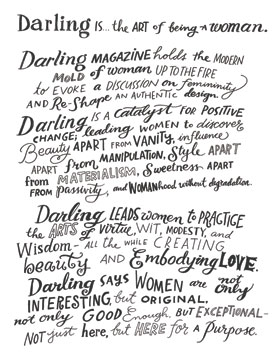 Darling is... the ART of being a woman.
Darling MAGAZINE holds the MODERN
MOLD of woman UP TO THE FIRE
to EVOKE a DISCUSSION on femininity
AND Re-Shape AN AUTHENTIC design.
Darling is a catalyst FOR POSITIVE
CHANGE; leading WOMEN to discover
Beauty APART from VANITY, influence
APART from MANIPULATION, Style APART
from MATERIALISM, Sweetness APART
from PASSIVITY, and WOMANhood without degradation.
Darling LEADS women to PRACTICE
the ARTS of virtue, WIT, MODESTY, and
Wisdom - ALL the WHILE CREATING
beauty AND Embodying LOVE.
Darling SAYS WOMEN are not only
INTERESTING, but ORIGINAL.
not only GOOD Enough, but EXCEPTIONAL-
NOT just here, but HERE for a Purpose.